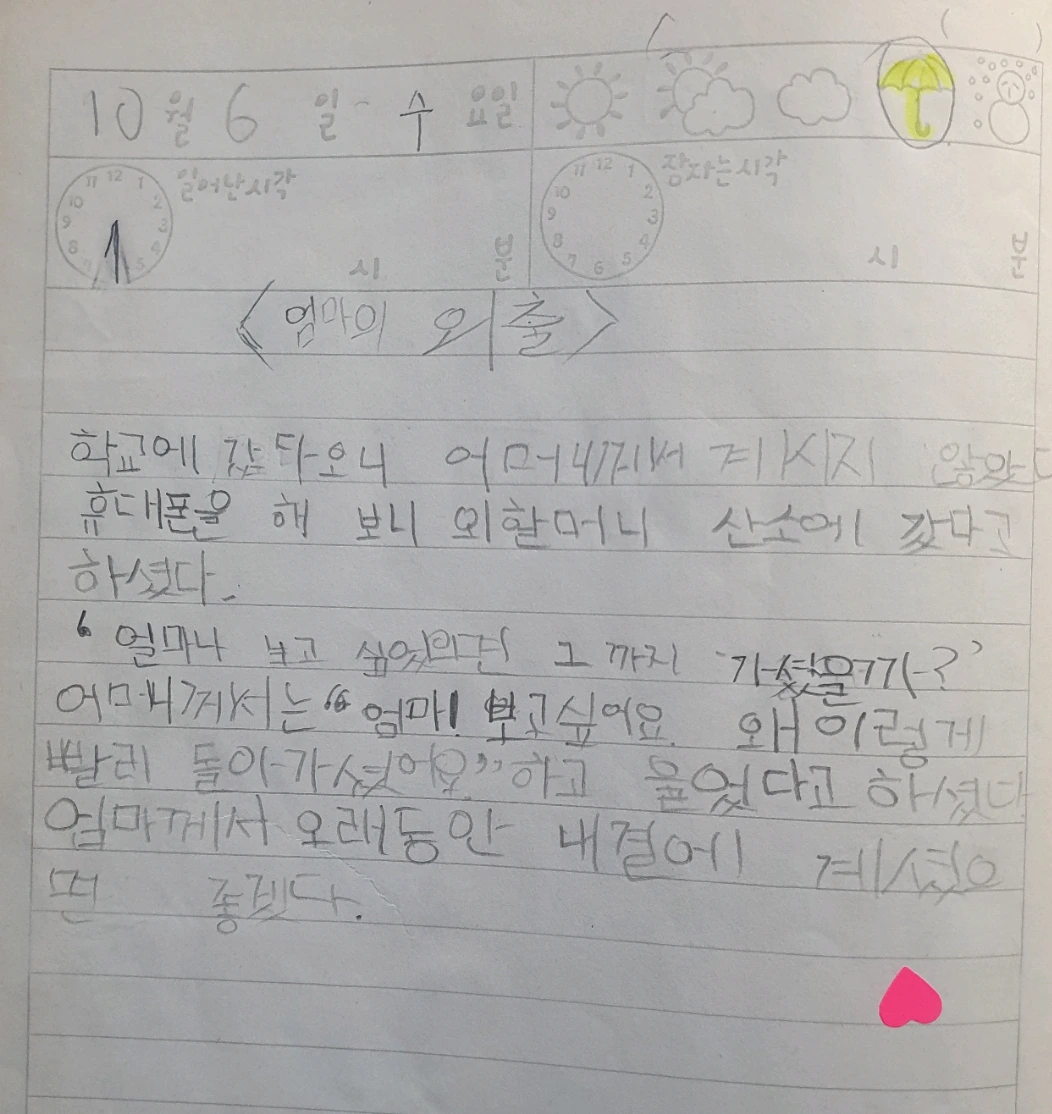 10월 6일 수요일
일어난시각 시 분
잠자는시각 시 분
11 12 1 2 3 4 5 7 8 9 10
11 12 1 2 3 4 5 6 7 8 9 10
<엄마의 외출>
학교에 갔다오니 어머니께서 계시지 않았다
휴대폰을 해 보니 외할머니 산소에 갔다고
하셨다.
‘얼마나 보고 싶었으면 그 까지 가셨을까?’
어머니께서는 “엄마! 보고싶어요. 왜 이렇게
빨리 돌아가셨어요”하고 울었다고 하셨다
엄마께서 오래동안 내결에 계셨으
면 좋겠다.